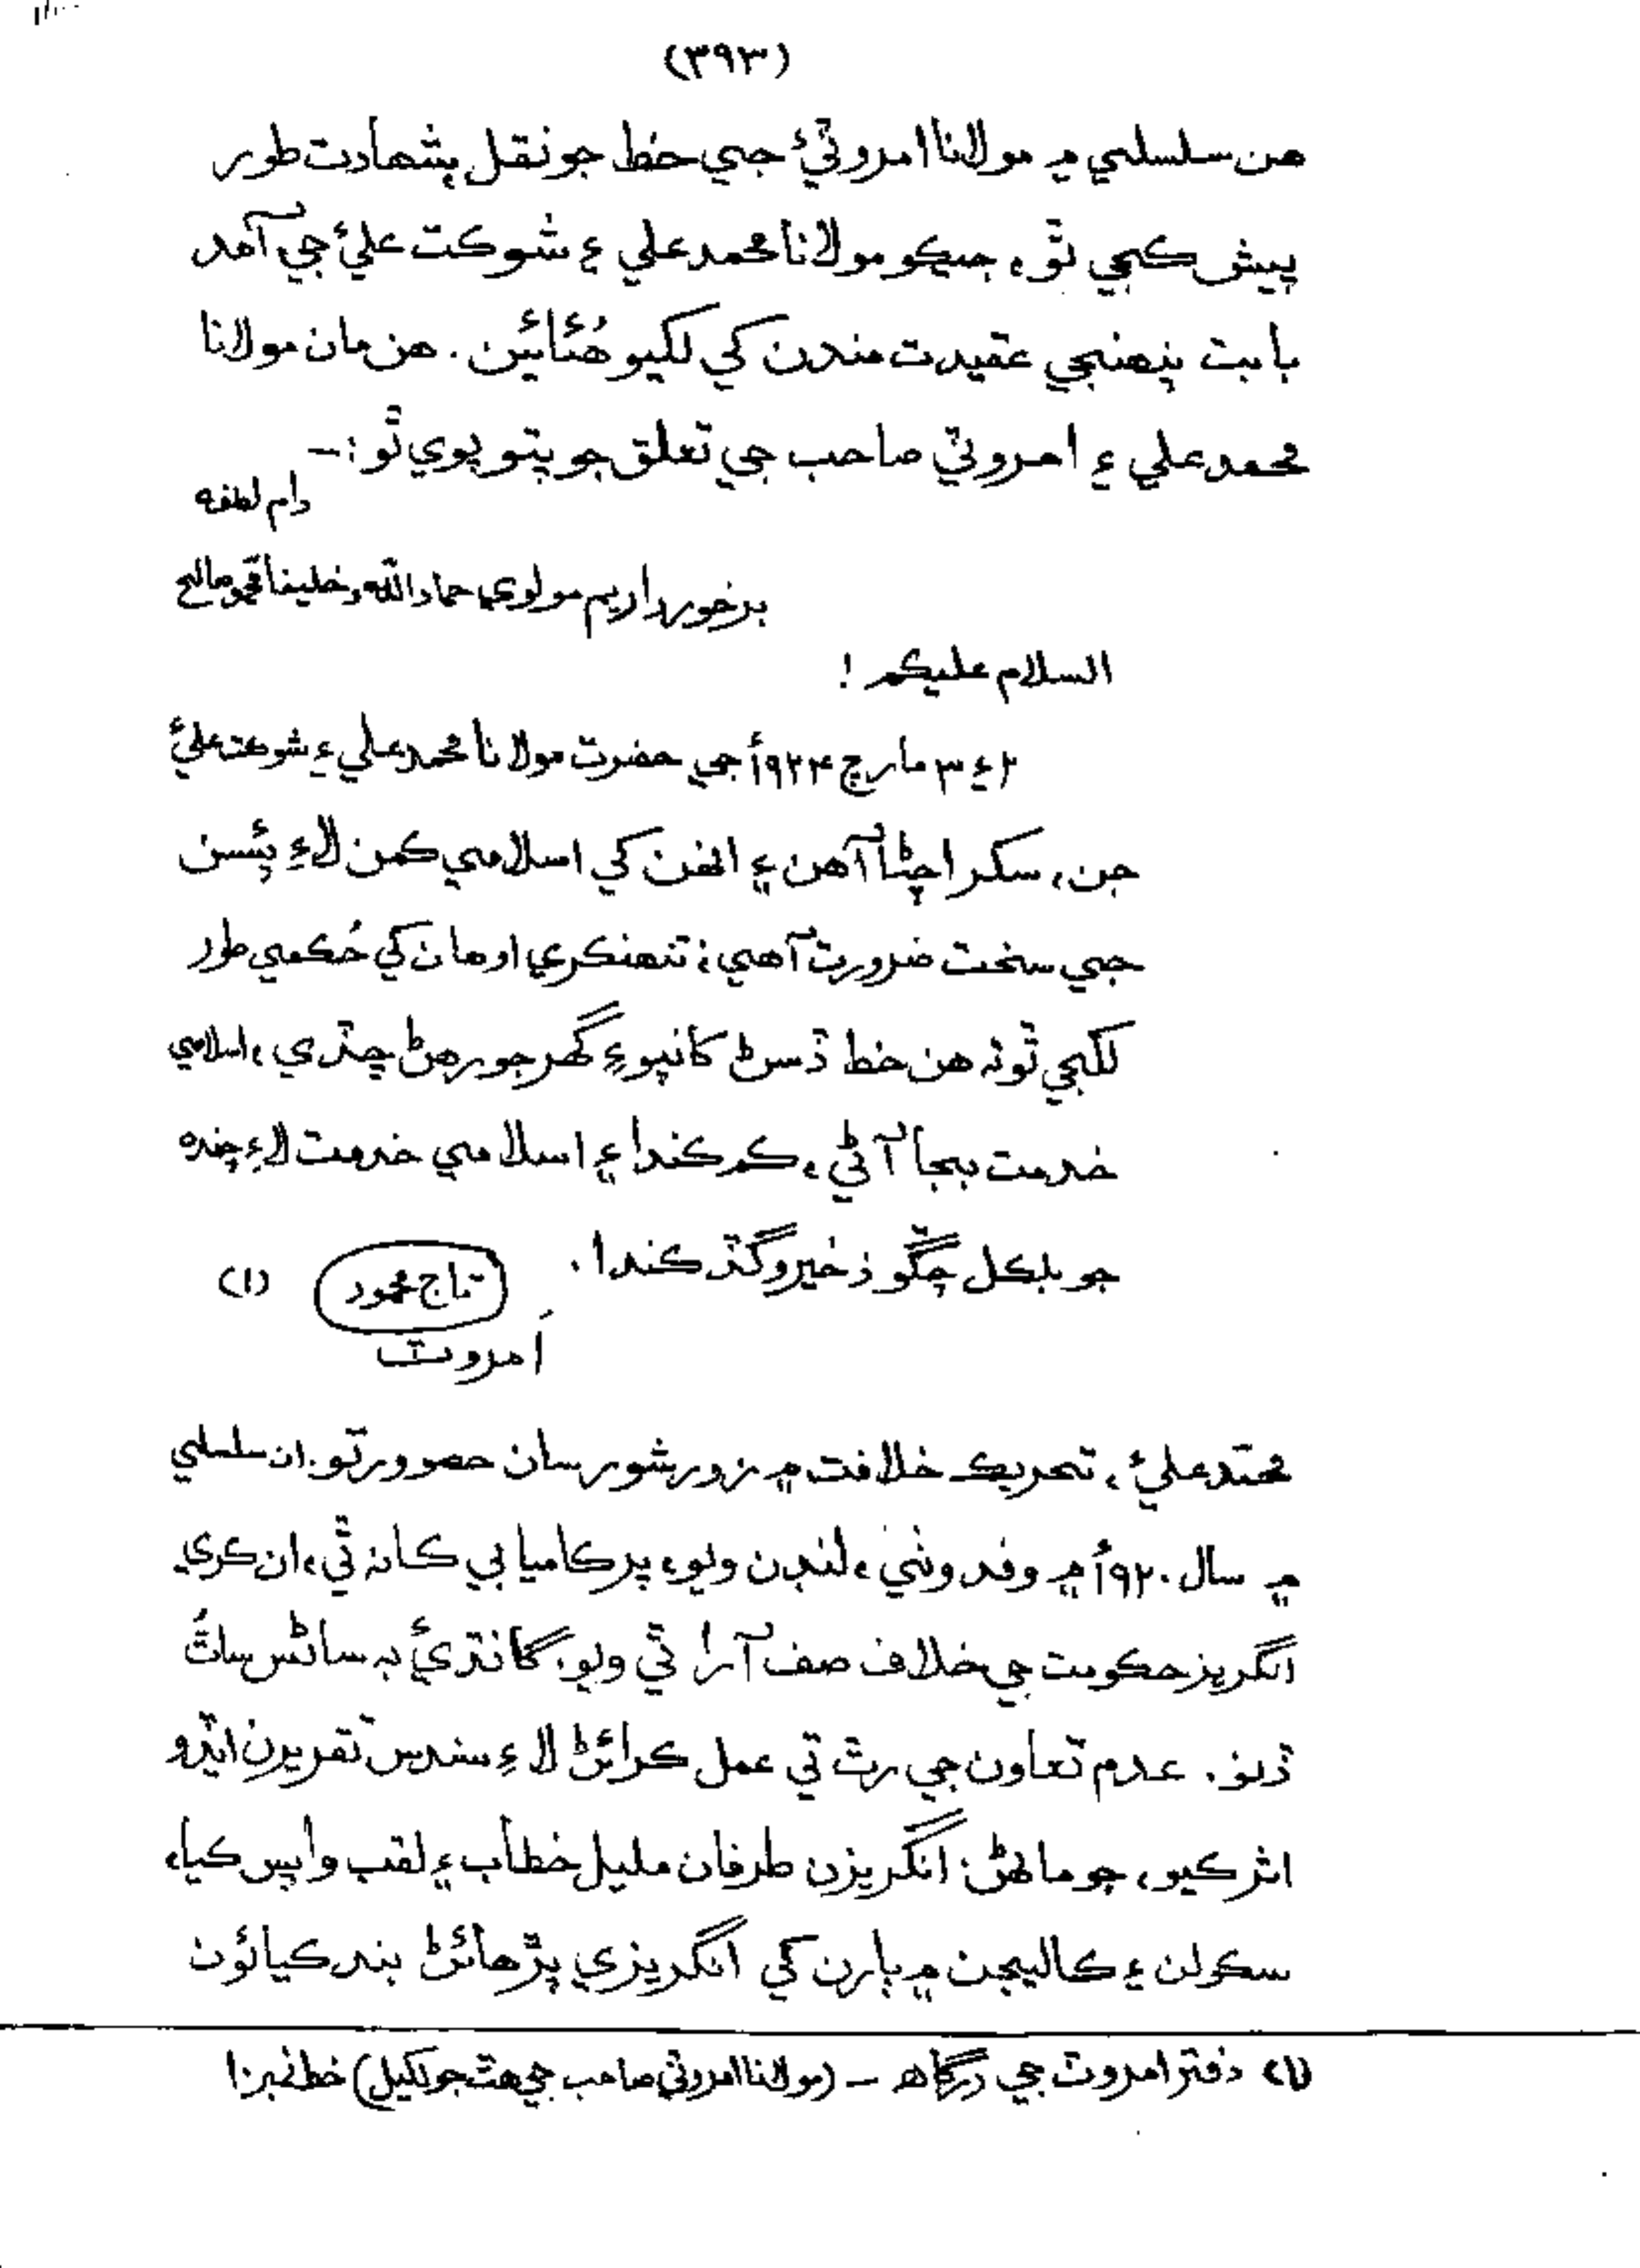 (۳۹۳)
هن سلسلي ۾ مولانا امروٽيءَ جي خط جو نقل بشھادت طور
پيش ڪجي ٿو، جيڪو مولانا محمد علي ۽ شوڪت عليءَ جي آمد
بابت پنھنجي عقيدت مندن کي لکيو ھُئائين. هن مان مولانا
محمد علي ۽ امروٽي صاحب جي تعلق جو پتو پوي ٿو:-
دام لطفه
برخورداريم مولوي حماد الله و خليفا محمد صالح
السلام عليڪم!
۲ ۽ ۳ مارچ ۱۹۲۴ع جي حضرت مولانا محمد علي ۽ شوڪت عليءَ
جن، سکر اچڻا آهن ۽ انهن کي اسلامي ڪمن لاءِ پئسن
جي سخت ضرورت آهي؛ تنھنڪري اوهان کي حُڪمي طور
لکجي ٿو تہ هن خط ڏسڻ کانپوءِ گھر جو رهڻ ڇڏي، اسلامي
خدمت بجا آڻي، ڪم ڪندا ۽ اسلامي خدمت لاءِ چنده
جو بلڪل چڱو ذخيرو گڏ ڪندا. تاج محمود (۱)
اَمروٽ
محمّد عليءَ، تحريڪ خلافت ۾ زور شور سان حصو ورتو. ان سلسلي
۾ سال ۱۹۲۰ع ۾ وفد وٺي، لنڊن ويو، پر ڪاميابي ڪانہ ٿي، ان ڪري
انگريز حڪومت جي خلاف صف آرا ٿي ويو. گانڌيءَ بہ ساڻس ساٿُ
ڏنو. عدم تعاون جي رٿ تي عمل ڪرائڻ لاءِ سندس تقريرن ايڏو
اثر ڪيو، جو ماڻهن؛ انگريزن طرفان مليل خطاب ۽ لقب واپس ڪيا،
سڪولن ۽ ڪاليجن ۾ ٻارن کي انگريزي پڙهائڻ بند ڪيائون
(۱) دفتر امروٽ جي درگاهه - (مولانا امروٽي صاحب جي هٿ جو لکيل) خط نمبر: ۱